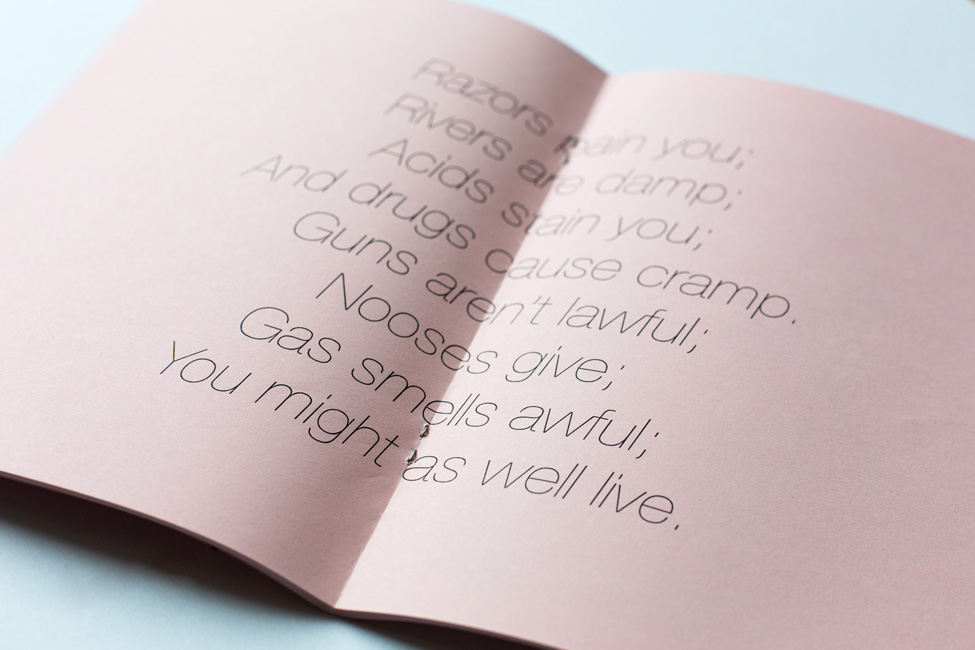 Razors pain you;
Rivers are damp;
Acids stain you;
And drugs cause cramp.
Guns aren't lawful;
Nooses give;
Gas smells awful;
You might as well live.